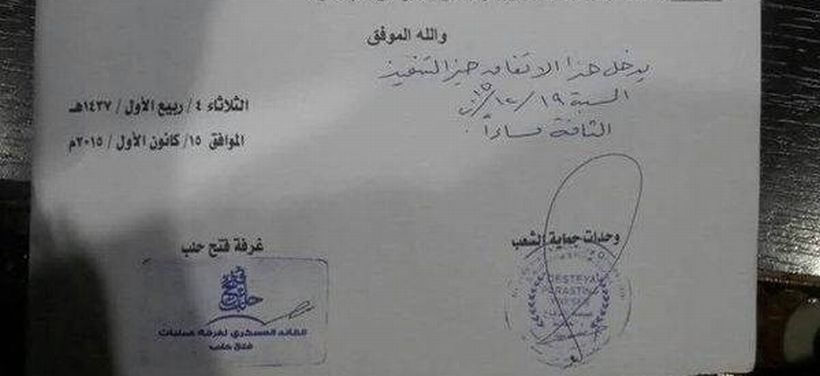 والله الموفق
يدخل هذا الاتفاق حيز التنفيذ
السبت ١٩/١٢/١٥
الثامنة مساءاً
الثلاثاء ٤ / ربيع الأول / ١٤٣٧هـ
الموافق ١٥/ كانون الأول / ٢٠١٥م
وحدات حماية الشعب
DESTEYA
PARASTIN
غرفة فتح حلب
فتح حلب
القائد العسكري لغرفة عمليات
فتح حلب